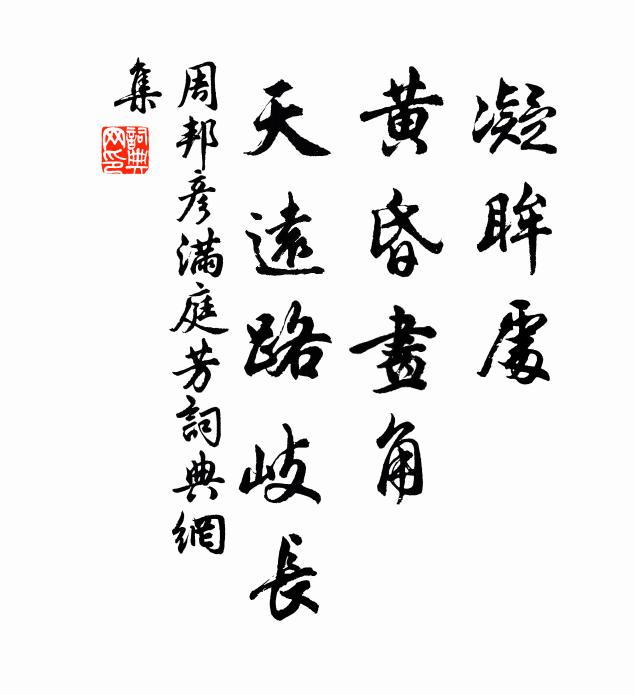 凝眸處
黃昏畫角
天遠路岐長
周邦彥滿庭芳詞典網
集
詞典
网印